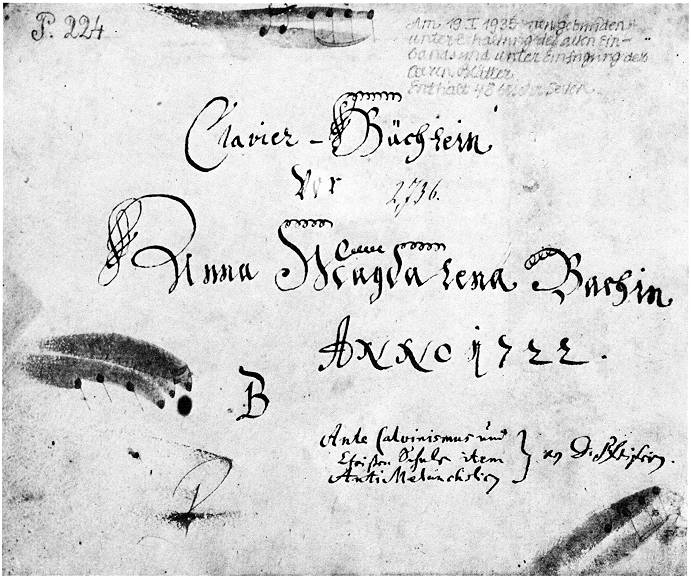 P. 224
Am 19.I.1935 neu gebunden
unter Erhaltung des alten Ein-
bands und unter Einfügung der
Blätter
Enthält 48 Seiten.
Clavier-Büchlein
vor 2736.
Anna Magdalena Bachin
ANNO 1722.
B
Ante Calvinismus und
Christen Schule item
Anti Melancholicus
von D. Pfeifern.